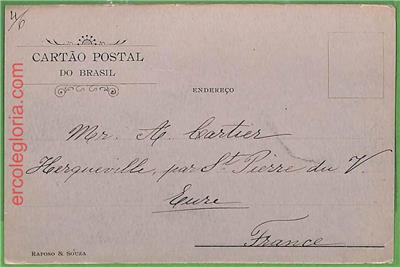 4/6
CARTÃO POSTAL
DO BRASIL
ENDEREÇO
Mr. A. Cartier
Herqueville, par St Pierre du V.
Eure
France
RAPOSO & SOUZA
ercolegloria.com